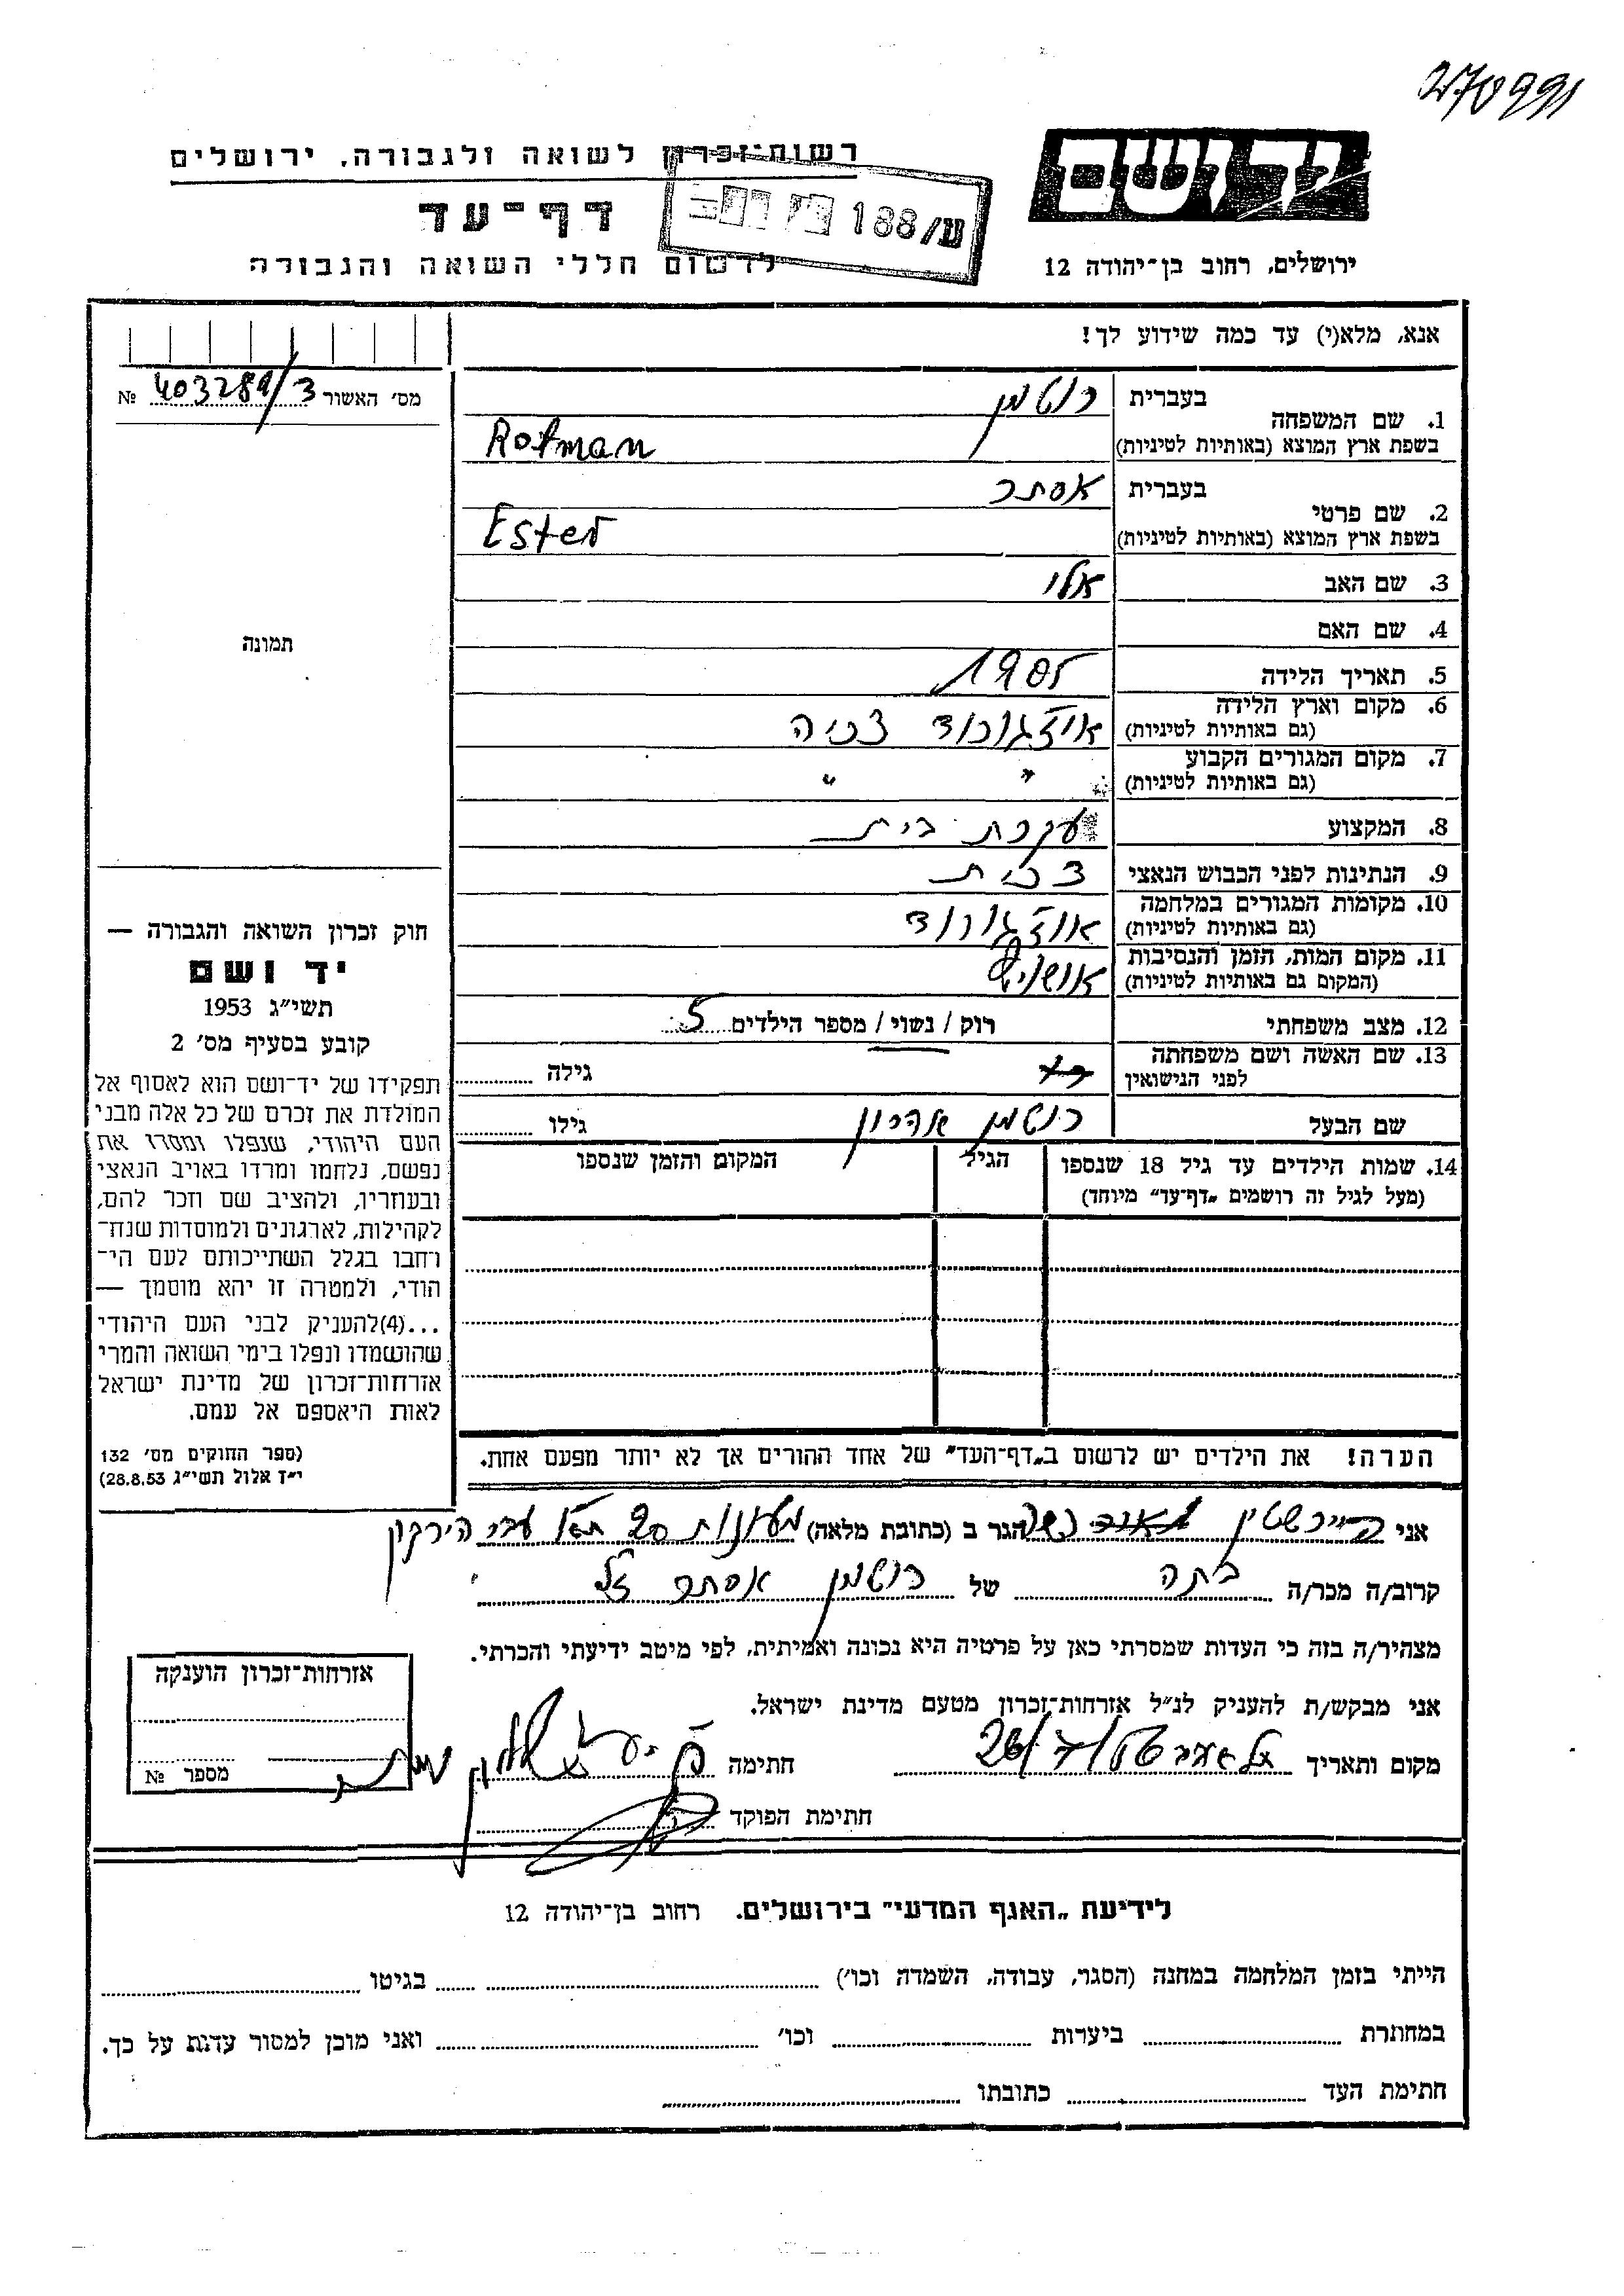 270991
רשות-זכרון לשואה ולגבורה, ירושלים
יד ושם
ע/188
דף-עד
לרשום חללי השואה והגבורה
ירושלים, רחוב בן-יהודה 12
אנא, מלא(י) עד כמה שידוע לך!
מס׳ האשור 403289/3 №
1. שם המשפחה בעברית רוטמן
בשפת ארץ המוצא (באותיות לטיניות) Rotman
2. שם פרטי בעברית אסתר
בשפת ארץ המוצא (באותיות לטיניות) Ester
3. שם האב אלי
4. שם האם
תמונה
5. תאריך הלידה 1905
6. מקום וארץ הלידה (גם באותיות לטיניות) אוז׳גורוד צ׳כיה
7. מקום המגורים הקבוע (גם באותיות לטיניות) " "
8. המקצוע עקרת בית
9. הנתינות לפני הכבוש הנאצי צ׳כית
10. מקומות המגורים במלחמה (גם באותיות לטיניות) אוז׳גורוד
11. מקום המות, הזמן והנסיבות (המקום גם באותיות לטיניות) אושויץ
12. מצב משפחתי רוק / נשוי / מספר הילדים 5
13. שם האשה ושם משפחתה לפני הנישואין גילה
שם הבעל רוטמן אהרון גילו
14. שמות הילדים עד גיל 18 שנספו הגיל המקום והזמן שנספו
(מעל לגיל זה רושמים „דף-עד" מיוחד)
חוק זכרון השואה והגבורה —
יד ושם
תשי״ג 1953
קובע בסעיף מס׳ 2
תפקידו של יד-ושם הוא לאסוף אל
המולדת את זכרם של כל אלה מבני
העם היהודי, שנפלו ומסרו את
נפשם, נלחמו ומרדו באויב הנאצי
ובעוזריו, ולהציב שם וזכר להם,
לקהילות, לארגונים ולמוסדות שנח-
רחבו בגלל השתייכותם לעם הי-
הודי, ולמטרה זו יהא מוסמך —
...(4)להעניק לבני העם היהודי
שהושמדו ונפלו בימי השואה והמרי
אזרחות-זכרון של מדינת ישראל
לאות היאספם אל עמם.
(ספר החוקים מס׳ 132
י״ז אלול תשי״ג 28.8.53)
הערה! את הילדים יש לרשום ב„דף-העד" של אחד ההורים אך לא יותר מפעם אחת.
אני הגר ב (כתובת מלאה) הירקון
קרוב/ה מכר/ה בתה של רוטמן אסתר ז״ל
מצהיר/ה בזה כי העדות שמסרתי כאן על פרטיה היא נכונה ואמיתית, לפי מיטב ידיעתי והכרתי.
אני מבקש/ת להעניק לנ״ל אזרחות-זכרון מטעם מדינת ישראל.
מקום ותאריך חתימה
חתימת הפוקד
אזרחות-זכרון הוענקה
מספר №
לידיעת „האגף המדעי" בירושלים. רחוב בן-יהודה 12
הייתי בזמן המלחמה במחנה (הסגר, עבודה, השמדה וכו׳) בגיטו
במחתרת ביערות וכו׳ ואני מוכן למסור עדות על כך.
חתימת העד כתובתו